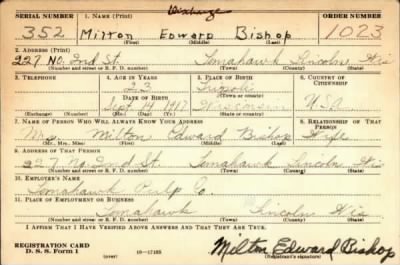 Discharge
SERIAL NUMBER 1. NAME (Print) ORDER NUMBER
352 Milton Edward Bishop 1023
(First) (Middle) (Last)
2. ADDRESS (Print)
227 No. 2nd St. Tomahawk Lincoln Wis
(Number and street or R. F. D. number) (Town) (County) (State)
3. TELEPHONE 4. AGE IN YEARS 5. PLACE OF BIRTH 6. COUNTRY OF CITIZENSHIP
23
DATE OF BIRTH (Town or county)
Sept 14 1917 Wisconsin U.S.A.
(Exchange) (Number) (Mo.) (Day) (Yr.) (State or country)
7. NAME OF PERSON WHO WILL ALWAYS KNOW YOUR ADDRESS 8. RELATIONSHIP OF THAT PERSON
Mrs. Milton Edward Bishop Wife
(Mr., Mrs., Miss) (First) (Middle) (Last)
9. ADDRESS OF THAT PERSON
227 No. 2nd St. Tomahawk Lincoln Wis
(Number and street or R. F. D. number) (Town) (County) (State)
10. EMPLOYER'S NAME
Tomahawk Pulp Co.
11. PLACE OF EMPLOYMENT OR BUSINESS
Tomahawk Lincoln Wis
(Number and street or R. F. D. number) (Town) (County) (State)
I AFFIRM THAT I HAVE VERIFIED ABOVE ANSWERS AND THAT THEY ARE TRUE.
REGISTRATION CARD
D. S. S. Form 1 (over) 16—17105 Milton Edward Bishop
(Registrant's signature)